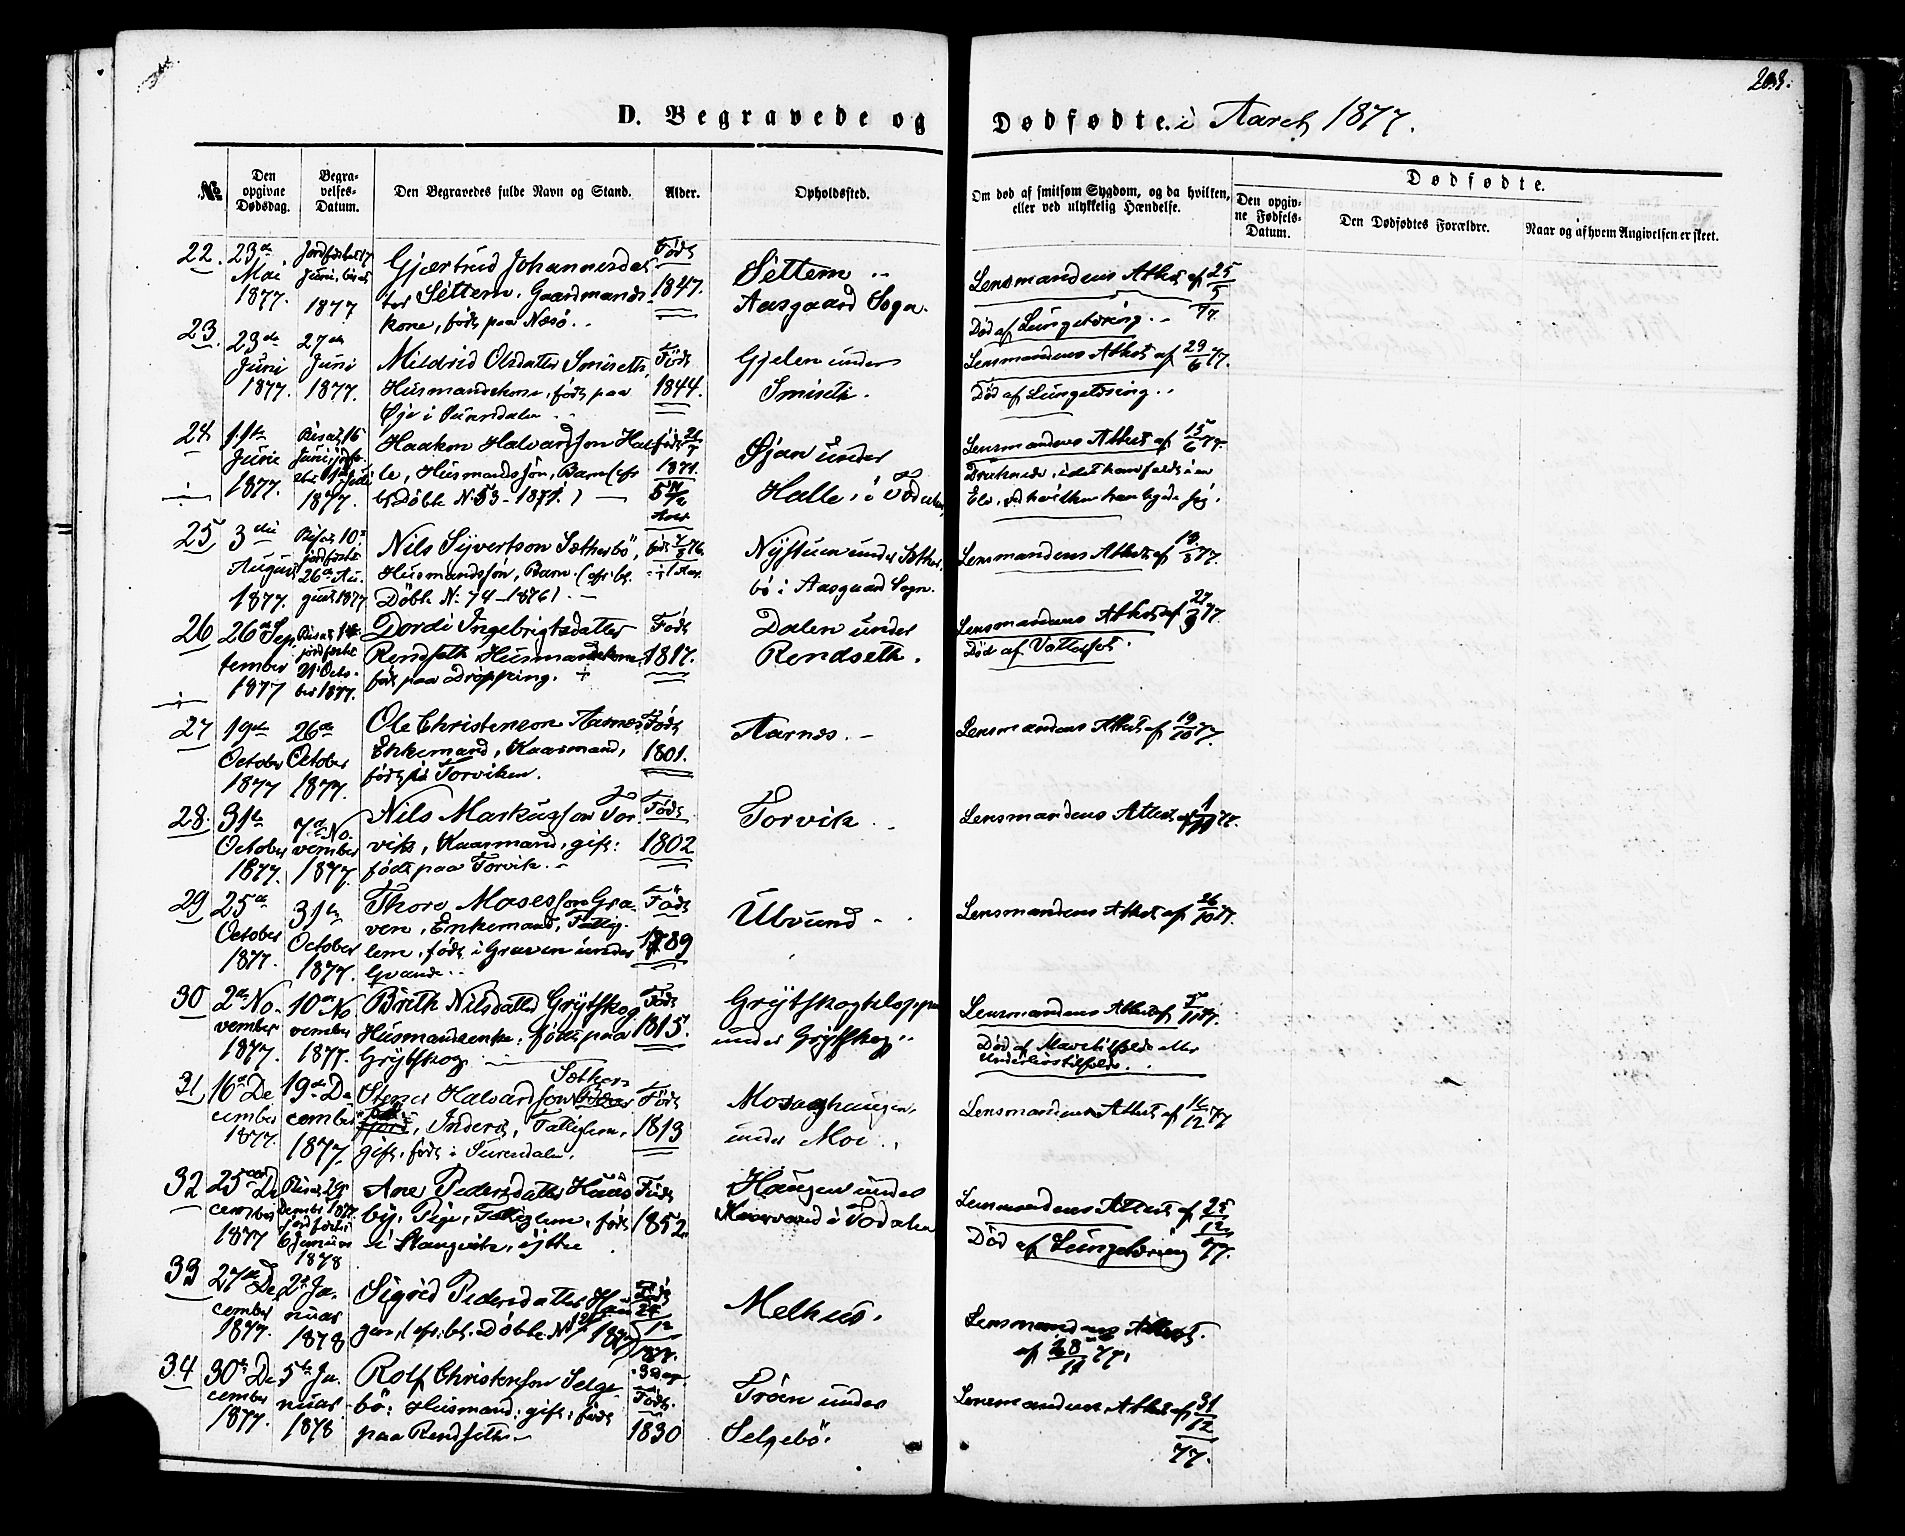 203.
D. Begravede og Dødfødte i Aaret 1877.
No.
Den opgivne Dødsdag.
Begravelses-Datum.
Den Begravedes fulde Navn og Stand.
Alder.
Opholdssted.
Om død af smitsom Sygdom, og da hvilken, eller ved ulykkelig Hændelse.
Dødfødte.
Den opgivne Fødsels-Datum.
Den Dødfødtes Forældre.
Naar og af hvem Angivelsen er skeet.
22. 23de Mai 1877.
Juni 1877
Gjertrud Johannesdat
ter Settem. Gaardmands
kone, født paa Næsö.
Født 1847.
Settem
Aasgaard Sogn.
Lensmandens Attest af 25/5 77.
Død af Lungetæring.
23. 23de Juni 1877.
27de Juni 1877.
Mildrid Olsdatter Smiseth
Husmandskone, født paa
Öye i Surendalen
Født 1844.
Gjelen under
Smiseth.
Lensmandens Attest af 29/6 77.
Død af Lungetæring.
24 11te Juni 1877.
Bisat 16 Juni 1877.
Haakon Halvardsson Hal
le, Husmandssön, Barn (cfr
bl. Döbte N. 53 - 1871.)
født 1871.
Öjan under
Halle i Todalen
Lensmandens Attest af 15/6 77.
Druknede, idet han faldt i en
Elv, ved hvilken han legede sig.
25 3die August 1877.
Bisat 10de jordfæstet 26de August 1877
Nils Syvertson Sætherbö,
Husmandssön, Barn. (cfr. bl.
Döbte N. 74 - 1876)
1 Aar.
Nystuen under Sæther
bö i Aasgaard Sogn.
Lensmandens Attest af 13/8 77.
26 26de September 1877
Bisat jordfæstet 21 October 1877.
Dordi Ingebrigtsdatter
Rendseth Husmandskone,
født paa Dröpping.
Født 1817.
Dalen under
Rendseth.
Lensmandens Attest af 27/9 77.
Død af Vattersot.
27 19de October 1877
26de October 1877.
Ole Christenson Aarnes
Enkemand, Kaarmand,
født på Torviken.
Født 1801.
Aarnes.
Lensmandens Attest af 19/10 77.
28 31te October 1877.
7de November 1877.
Nils Markusson Tor
vik, Kaarmand, gift:
født paa Torvik.
Født 1802
Torvik
Lensmandens Attest af 1/11 77.
29 25de October 1877.
31te October 1877.
Thore Mosesson Gra
ven, Enkemand, Fattig
lem, født i Graven under
Qvande.
Født 1789
Ulvund
Lensmandens Attest af 26/10 77.
30 2den November 1877.
10de November 1877.
Brith Nilsdatter Grytskog
Husmandsenke, født paa
Grytskog
Født 1815.
Grytskogkloppen
under Grytskog
Lensmandens Attest af 5/11 77.
Død af Mavetilfælde eller
Underlivstilfælde.
31 16de December 1877.
19de December 1877.
Stener Halvardson Sæther
Inderst, Fattiglem,
gift, født i Surendalen.
Født 1813
under Moe.
Lensmandens Attest af 16/12 77
32 25de December 1877
Bisat 29 December 1877 jordfæstet 6 Januar 1878
Ane Pedersdatter Huus
by, Pige, Fattiglem, født
i Stangvik, ytre
Født 1852.
Haugen under
Kvarvand i Todalen
Lensmandens Attest af 25/12 77.
Død af Lungetæring
33 27de December 1877.
2den Januar 1878
Sigrid Pedersdatter Hau
gen, (cfr. bl. Döbte N. 1877)
Født 24/12 1877.
3 Dage
Melhus.
Lensmandens Attest.
af 28 77.
34 30te December 1877.
5te Januar 1878
Rolf Christenson Selge
bö: Husmand, gift, født
paa Rendseth
Født. 1830
Tröen under
Selgebö.
Lensmandens Attest af 31/12 77.